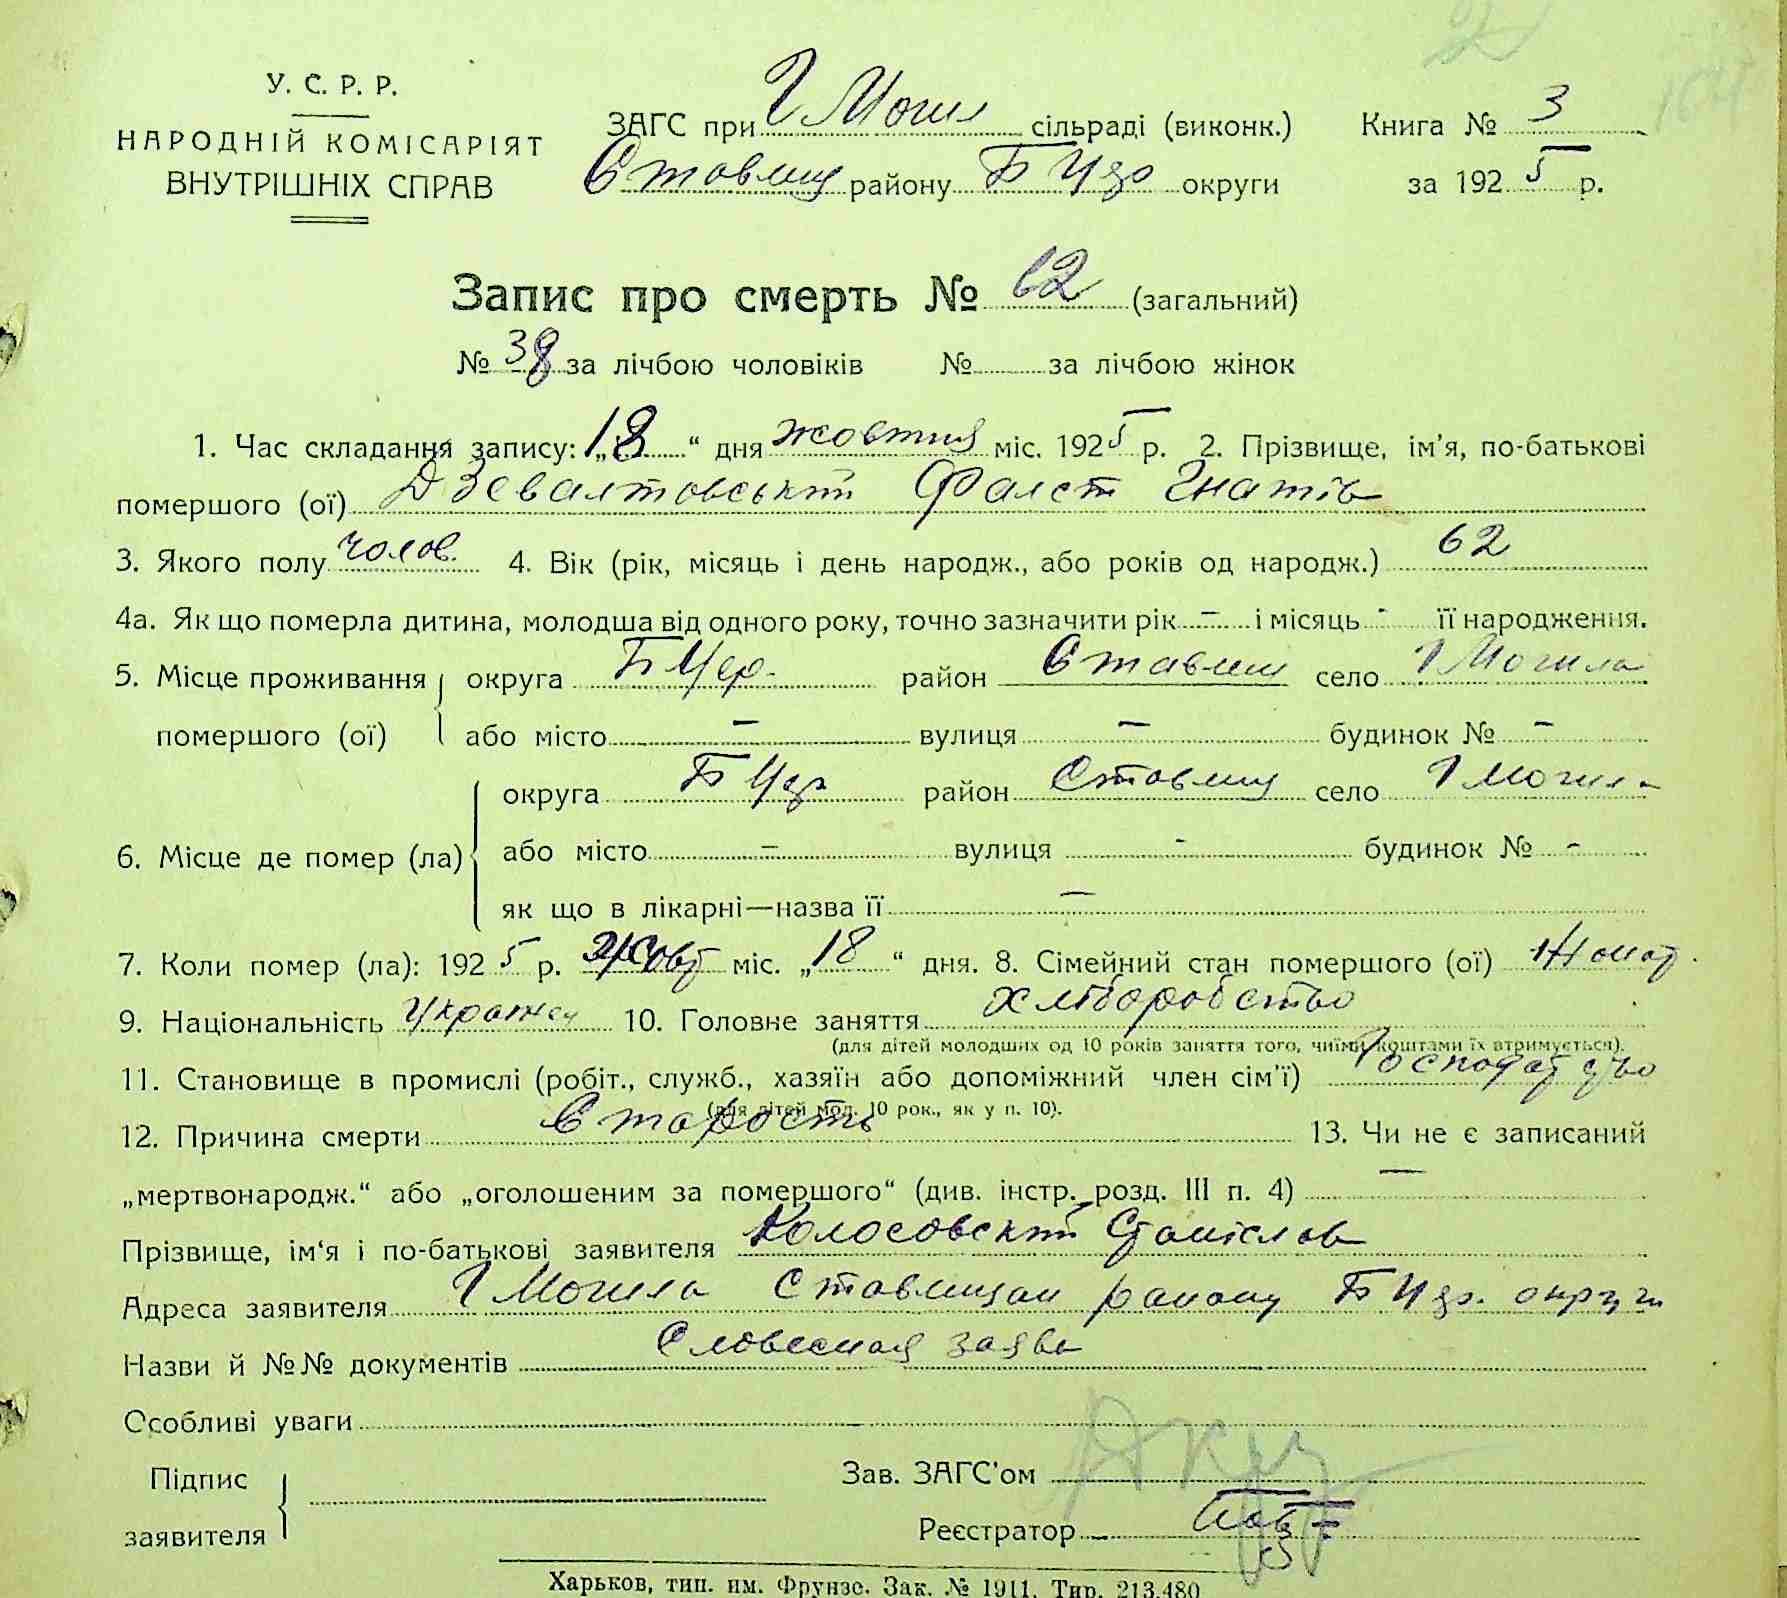 У. С. Р. Р.
НАРОДНІЙ КОМІСАРІЯТ
ВНУТРІШНІХ СПРАВ
ЗАГС при Г Могил сільраді (виконк.) Книга № 3
Ставищ району Б Цер округи за 1925 р.
Запис про смерть № 62 (загальний)
№ 38 за лічбою чоловіків № за лічбою жінок
1. Час складання запису: „18“ дня жовтня міс. 1925 р. 2. Прізвище, ім'я, по-батькові
помершого (ої) Дзевалтовський Фалст Гнатів
3. Якого полу чолов. 4. Вік (рік, місяць і день народж., або років од народж.) 62
4а. Як що померла дитина, молодша від одного року, точно зазначити рік – і місяць - її народження.
5. Місце проживання округа Б Цер. район Ставищ село Г Могила
помершого (ої) або місто – вулиця – будинок № –
округа Б Цер район Ставищ село Г Могила
6. Місце де помер (ла) або місто – вулиця - будинок № -
як що в лікарні—назва її —
7. Коли помер (ла): 1925 р. Жовт міс. „18“ дня. 8. Сімейний стан помершого (ої) Жонат.
9. Національність Україн 10. Головне заняття хліборобство
(для дітей молодших од 10 років заняття того, чиїми коштами їх втримується).
11. Становище в промислі (робіт., служб., хазяїн або допоміжний член сім'ї) Господарство
(для дітей мол. 10 рок., як у п. 10).
12. Причина смерти Старость 13. Чи не є записаний
„мертвонародж.“ або „оголошеним за помершого“ (див. інстр. розд. III п. 4) —
Прізвище, ім'я і по-батькові заявителя Колосовский Станіслав
Адреса заявителя Г Могила Ставищан району Б Цер. округи
Назви й №№ документів Словесная заява
Особливі уваги
Підпис
заявителя
Зав. ЗАГС'ом
Реєстратор
Харьков, тип. им. Фрунзе. Зак. № 1911. Тир. 213.480